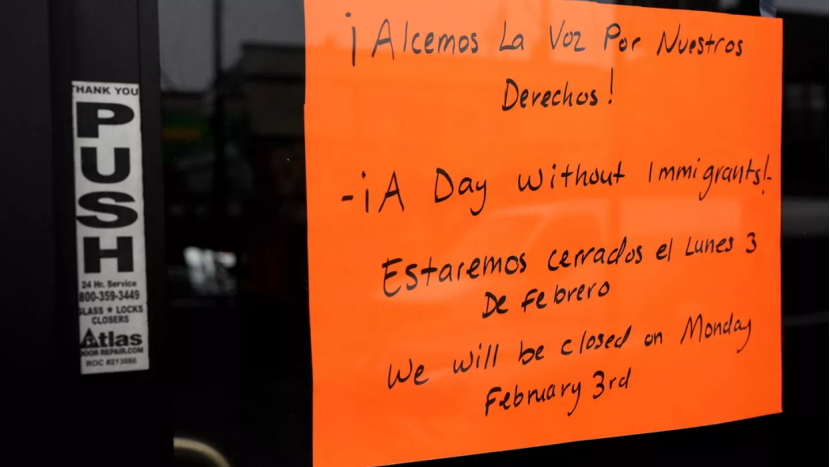 THANK YOU
PUSH
24 Hr. Service
800-359-3449
GLASS ★ LOCKS
CLOSERS
Atlas
DOOR REPAIR.COM
¡Alcemos La Voz Por Nuestros
Derechos!
-¡A Day Without Immigrants!-
Estaremos cerrados el Lunes 3
De febrero
We will be closed on Monday
February 3rd